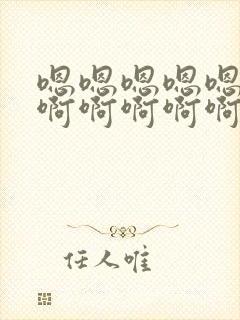 嗯嗯嗯嗯嗯
啊啊啊啊啊
任人唯